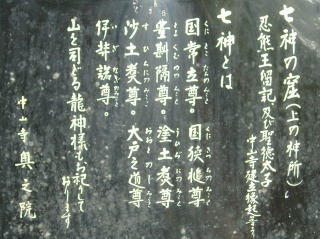 七神の窟(上の神所)と
忍熊王留記及び聖徳太子
中山寺建立縁起等より
七神とは
国常立尊。国狭槌尊
豊斟渟尊。埿土煑尊
沙土煑尊。大戸之道尊
伊弉諾尊。
山を司どる龍神様もお祀りして
おります
中山寺奥之院